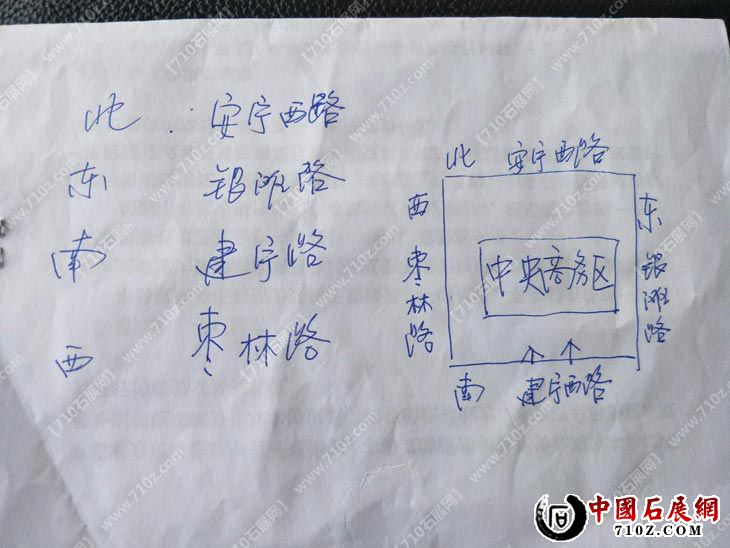 北 安宁西路
东 银滩路
南 建宁路
西 枣林路
北 安宁西路
西 枣林路
东 银滩路
中央商务区
南 建宁西路
中國石展網
710z.com
【710石展网】
www.710z.com